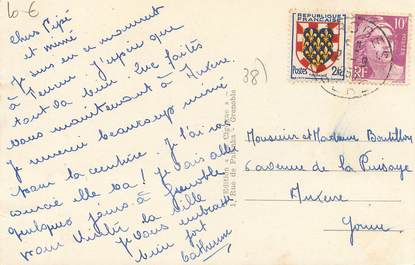 10 €
Chers Pépé
et mémé
Je suis en ce moment
à J'espère que
tout va bien. Que faites
vous maintenant à Auxerre.
Je remercie beaucoup mémé
pour la J'ai
elle va! Je vais aller
quelques jours à Grenoble
pour visiter la ville
Je vous embrasse
bien fort
Catherine
38)
Edition "La Cigogne"
1, Rue de - Grenoble
REPUBLIQUE
FRANÇAISE
POSTES
10F
RF
Monsieur et Madame Boutillon
6 avenue de la Puisaye
Auxerre
Yonne